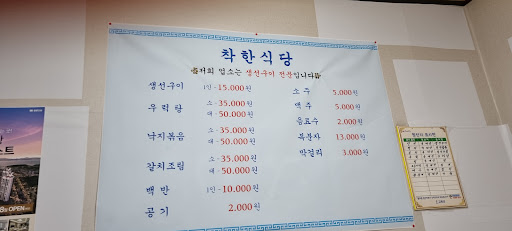 착한식당
저희 업소는 생선구이 전문입니다
생선구이 1인 - 15,000원
우럭탕 소 - 35,000원
대 - 50,000원
낙지볶음 소 - 35,000원
대 - 50,000원
갈치조림 소 - 35,000원
대 - 50,000원
백반 1인 - 10,000원
공기 2,000원
소주 5,000원
맥주 5,000원
음료수 2,000원
복분자 13,000원
막걸리 3,000원
OPEN